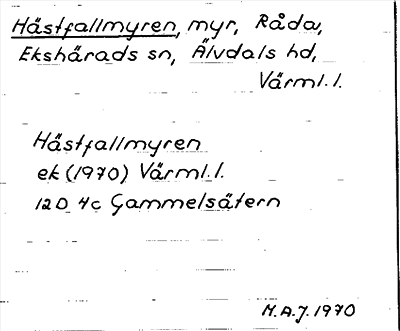 Hästfallmyren, myr, Råda,
Ekshärads sn, Älvdals hd,
Värml. l.
Hästfallmyren
ek (1970) Värml. l.
12D 4c Gammelsätern
M.A.J. 1970